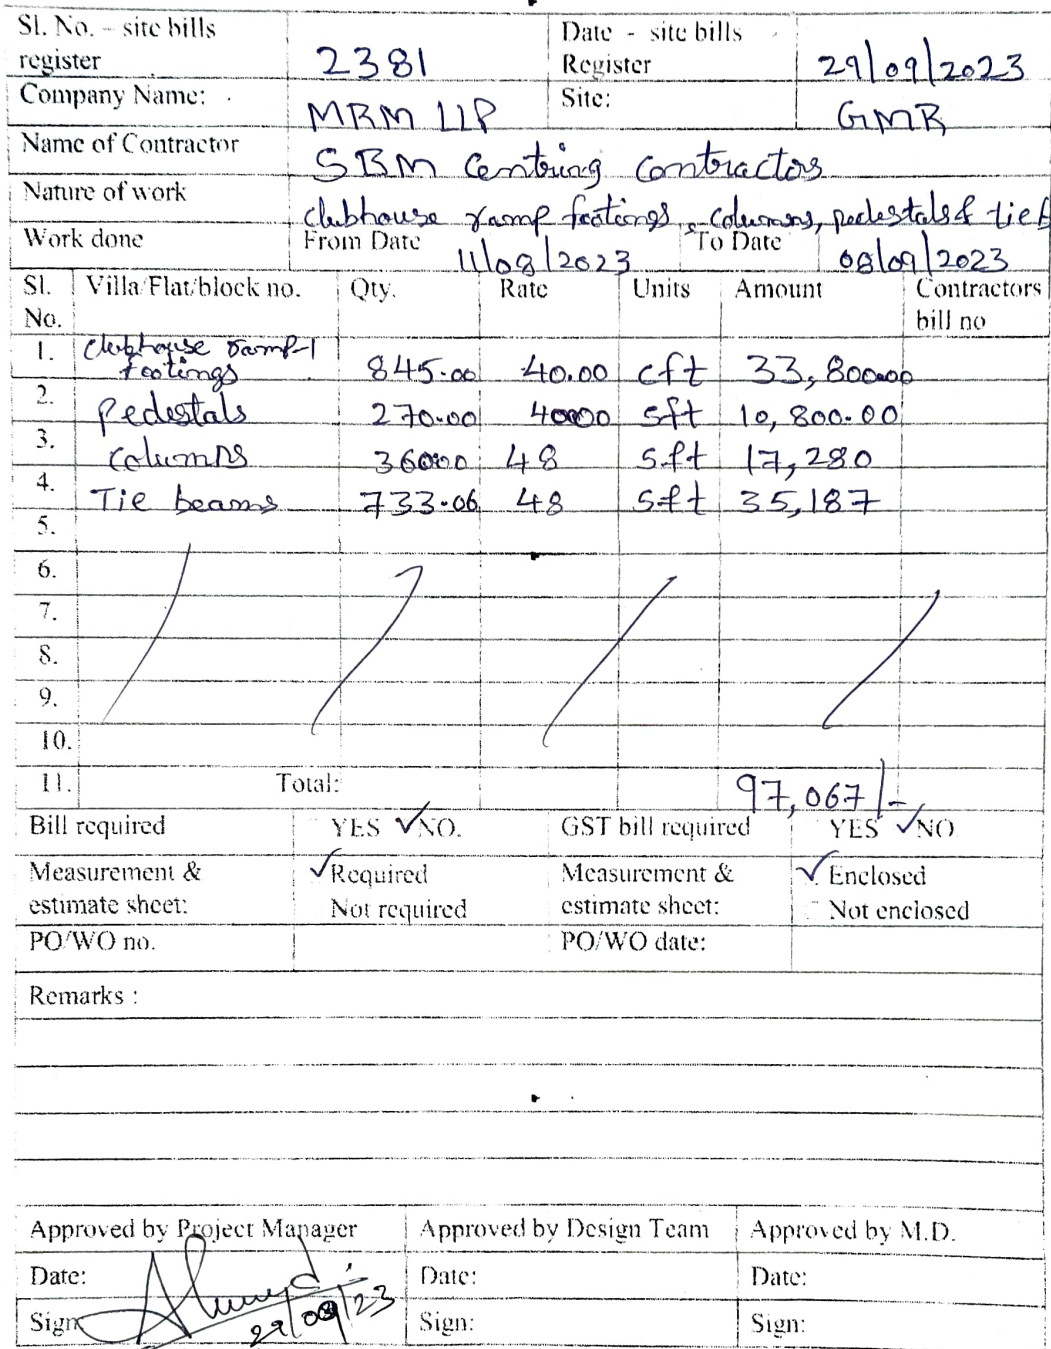 Sl. No. – site bills register 2381 Date - site bills Register 29/09/2023
Company Name: MRM LLP Site: GMR
Name of Contractor SBM Centring Contractors
Nature of work clubhouse ramp footings, columns, pedestals & tie b
Work done From Date 11/08/2023 To Date 08/09/2023
Sl. No. Villa/Flat/block no. Qty. Rate Units Amount Contractors bill no
1. Clubhouse ramp-1 footings 845.00 40.00 cft 33,800.00
2. pedestals 270.00 40.00 sft 10,800.00
3. columns 360.00 48 sft 17,280
4. Tie beams 733.06 48 sft 35,187
5.
6.
7.
8.
9.
10.
11. Total: 97,067/-
Bill required YES ✓NO. GST bill required YES ✓NO
Measurement & estimate sheet: ✓Required Not required Measurement & estimate sheet: ✓Enclosed Not enclosed
PO/WO no. PO/WO date:
Remarks :
Approved by Project Manager Approved by Design Team Approved by M.D.
Date: Date: Date:
Sign 29/09/23 Sign: Sign: